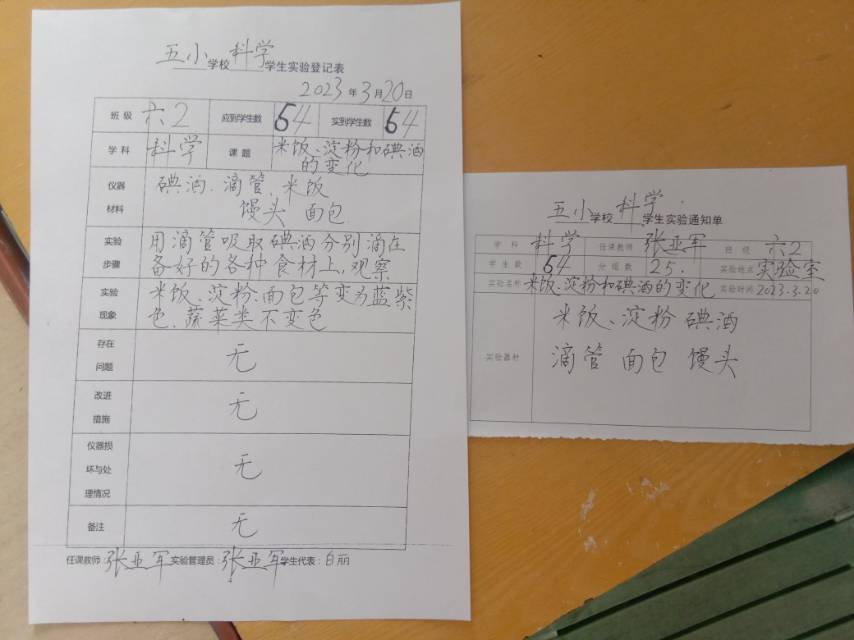 五小学校科学学生实验登记表
2023年3月20日
班级 六2 应到学生数 64 实到学生数 64
学科 科学 课题 米饭、淀粉和碘酒的变化
仪器材料 碘酒、滴管、米饭
馒头 面包
实验步骤 用滴管吸取碘酒分别滴在
备好的各种食材上,观察
实验现象 米饭、淀粉、面包等变为蓝紫
色,蔬菜类不变色
存在问题 无
改进措施 无
仪器损坏与处理情况 无
备注 无
任课教师:张亚军 实验管理员:张亚军 学生代表:白丽
五小学校科学学生实验通知单
学科 科学 任课教师 张亚军 班级 六2
学生数 64 分组数 25. 实验地点 实验室
实验名称 米饭、淀粉和碘酒的变化 实验时间 2023.3.20
实验器材 米饭、淀粉 碘酒
滴管 面包 馒头